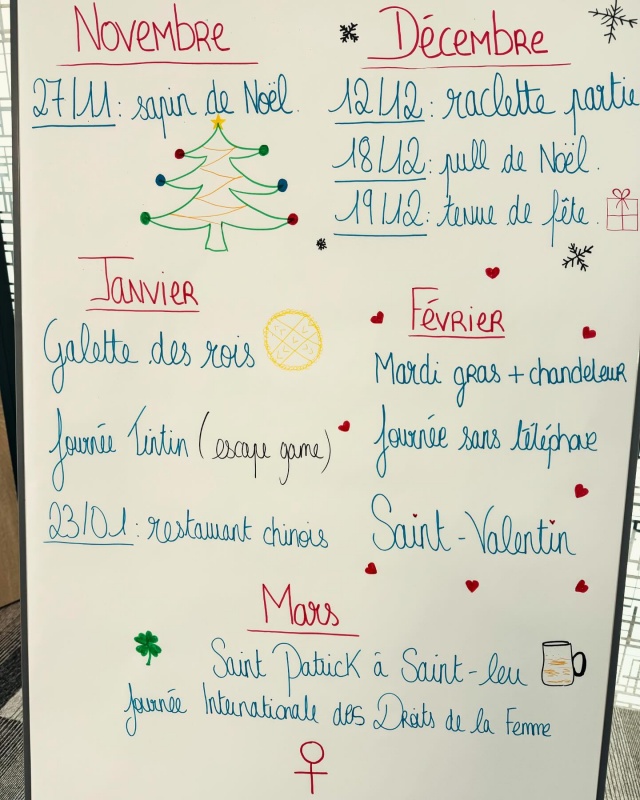 Novembre
27/11 : sapin de Noël.
Décembre
12/12 : raclette partie
18/12 : pull de Noël.
19/12 : tenue de fête.
Janvier
Galette des rois
Journée Tintin (escape game)
23/01 : restaurant chinois
Février
Mardi gras + chandeleur
Journée sans téléphone
Saint-Valentin
Mars
Saint Patrick à Saint-leu
Journée Internationale des Droits de la Femme